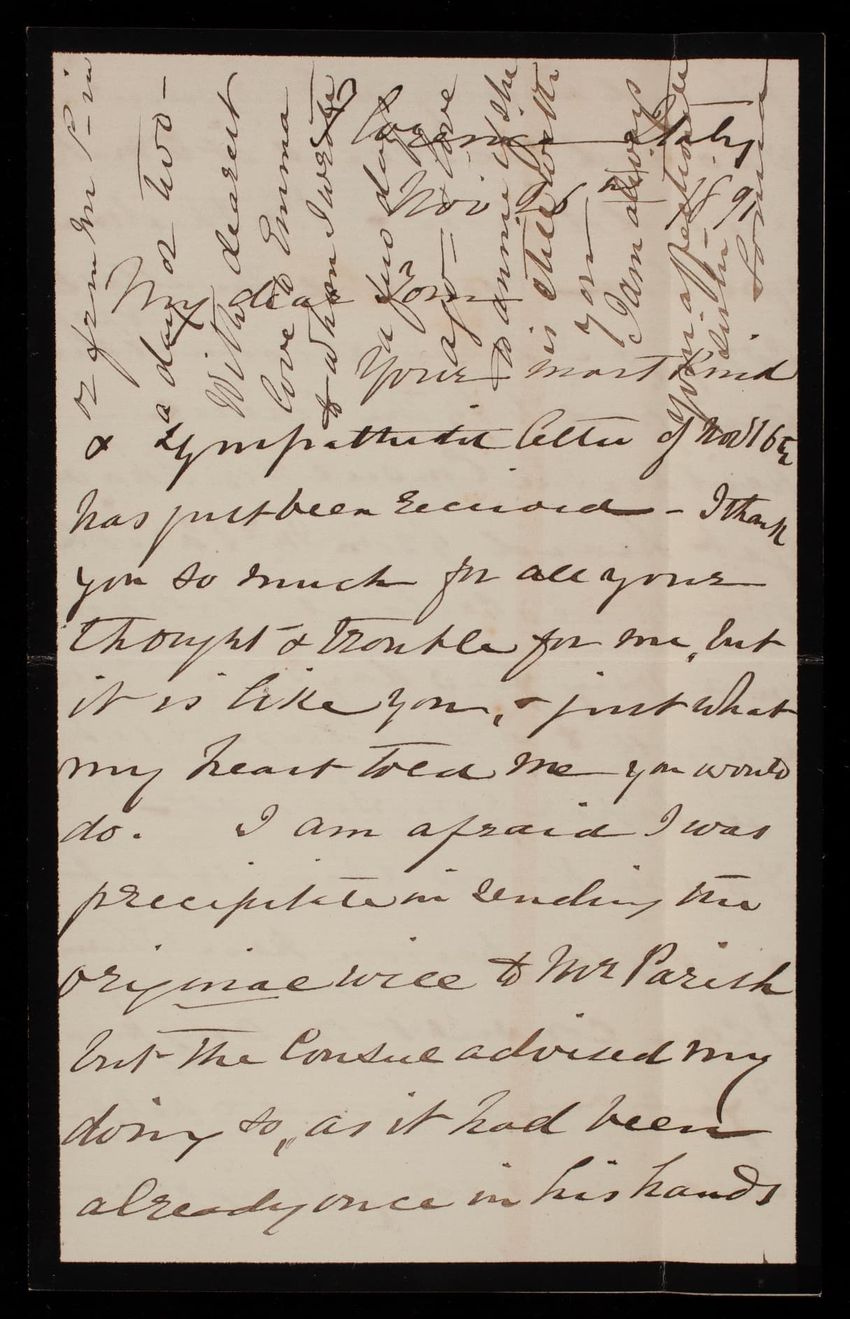 Florence Italy
Nov 26th 1891
My dear Tom
Your most kind
& sympathetic letter of Nov 16th
has just been received - I thank
you so much for all your
thought & trouble for me, but
it is like you, & just what
my heart told me you would
do. I am afraid I was
precipitate in sending the
original will to Mr Parish
but the Consul advised my
doing so, as it had been
already once in his hands
or from Mr P- in
a day or two -
With dearest
love to Emma
to whom I wrote
a few days
ago - love
to Annie if she
is still with
you -
I am always
Your affectionate
sister